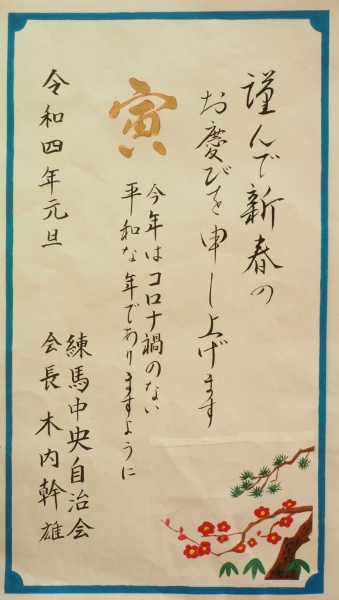 謹んで新春の
お慶びを申し上げます
寅
今年はコロナ禍のない
平和な年でありますように
令和四年元旦
練馬中央自治会
会長 木内幹雄